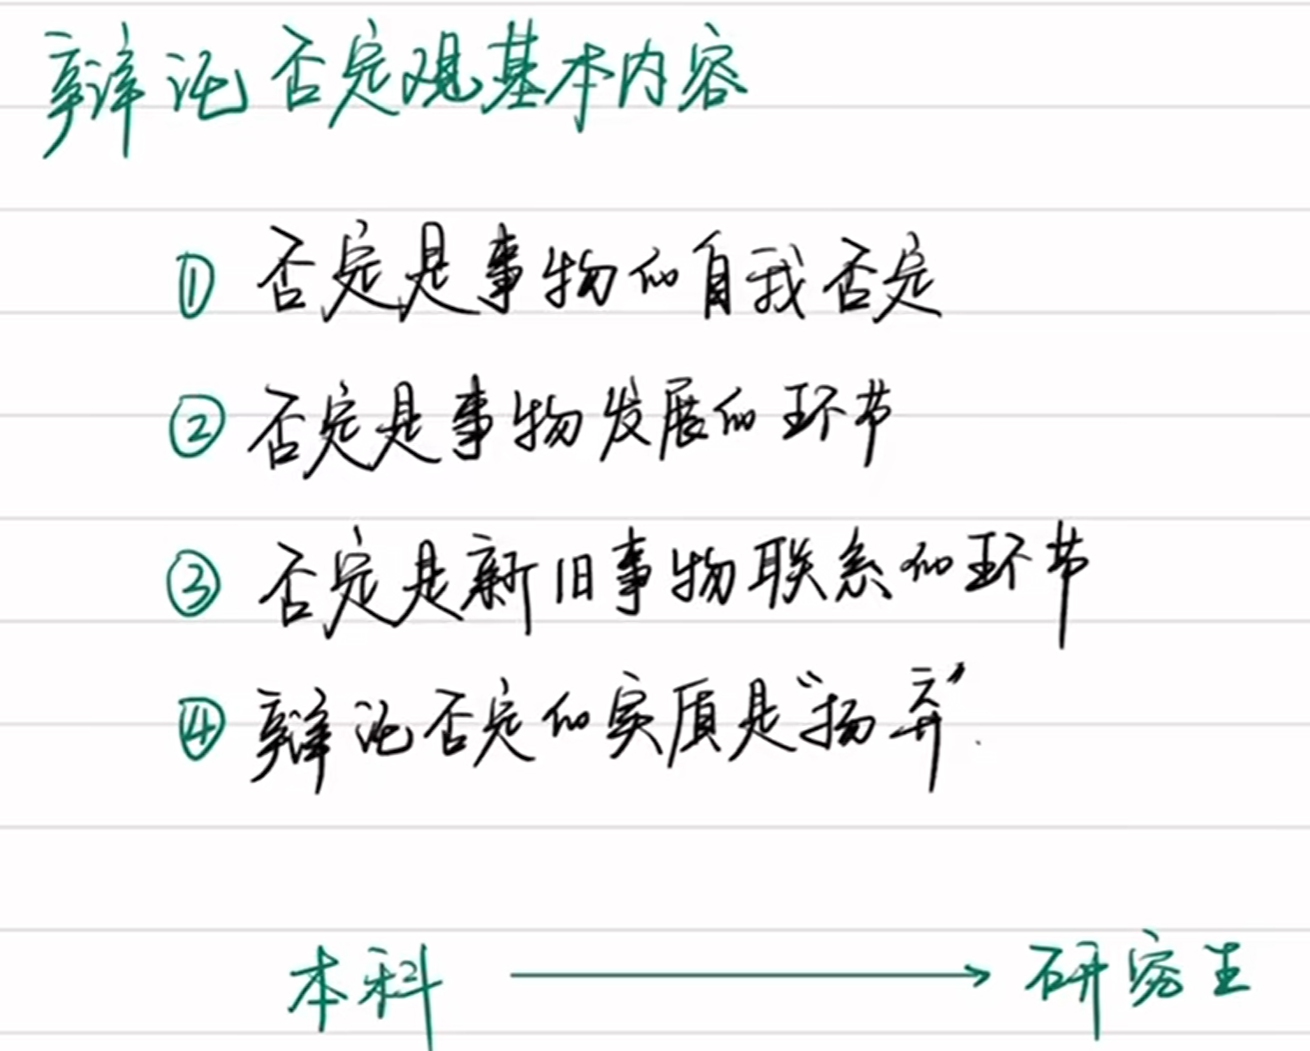 辩证否定观基本内容
① 否定是事物的自我否定
② 否定是事物发展的环节
③ 否定是新旧事物联系的环节
④ 辩证否定的实质是“扬弃”.
本科 → 研究生